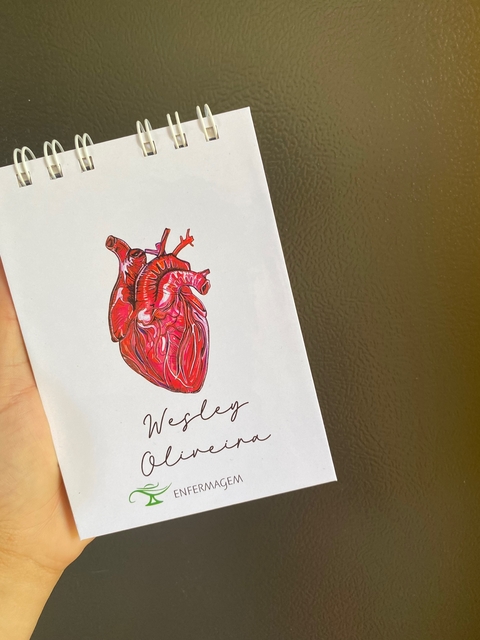 Wesley
Oliveira
ENFERMAGEM